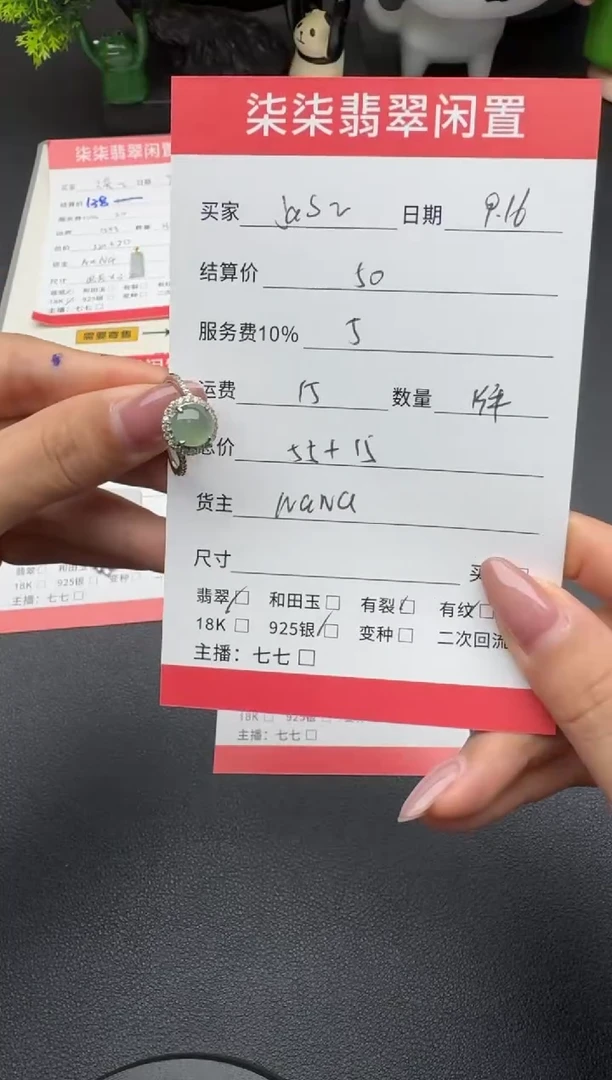 柒柒翡翠闲置
买家 日期 9.16
结算价 50
服务费10% 5
运费 15 数量
总价 55+15
货主 NaNa
尺寸 买
翡翠 和田玉 有裂 有纹
18K 925银 变种 二次回流
主播：七七
柒柒翡翠闲置
买家 日期
结算价 138
服务费10%
尺寸
18K 925银 变种
主播：七七
需要寄售
翡翠 和田玉
18K 925银 变种
主播：七七
18K 925银
主播：七七